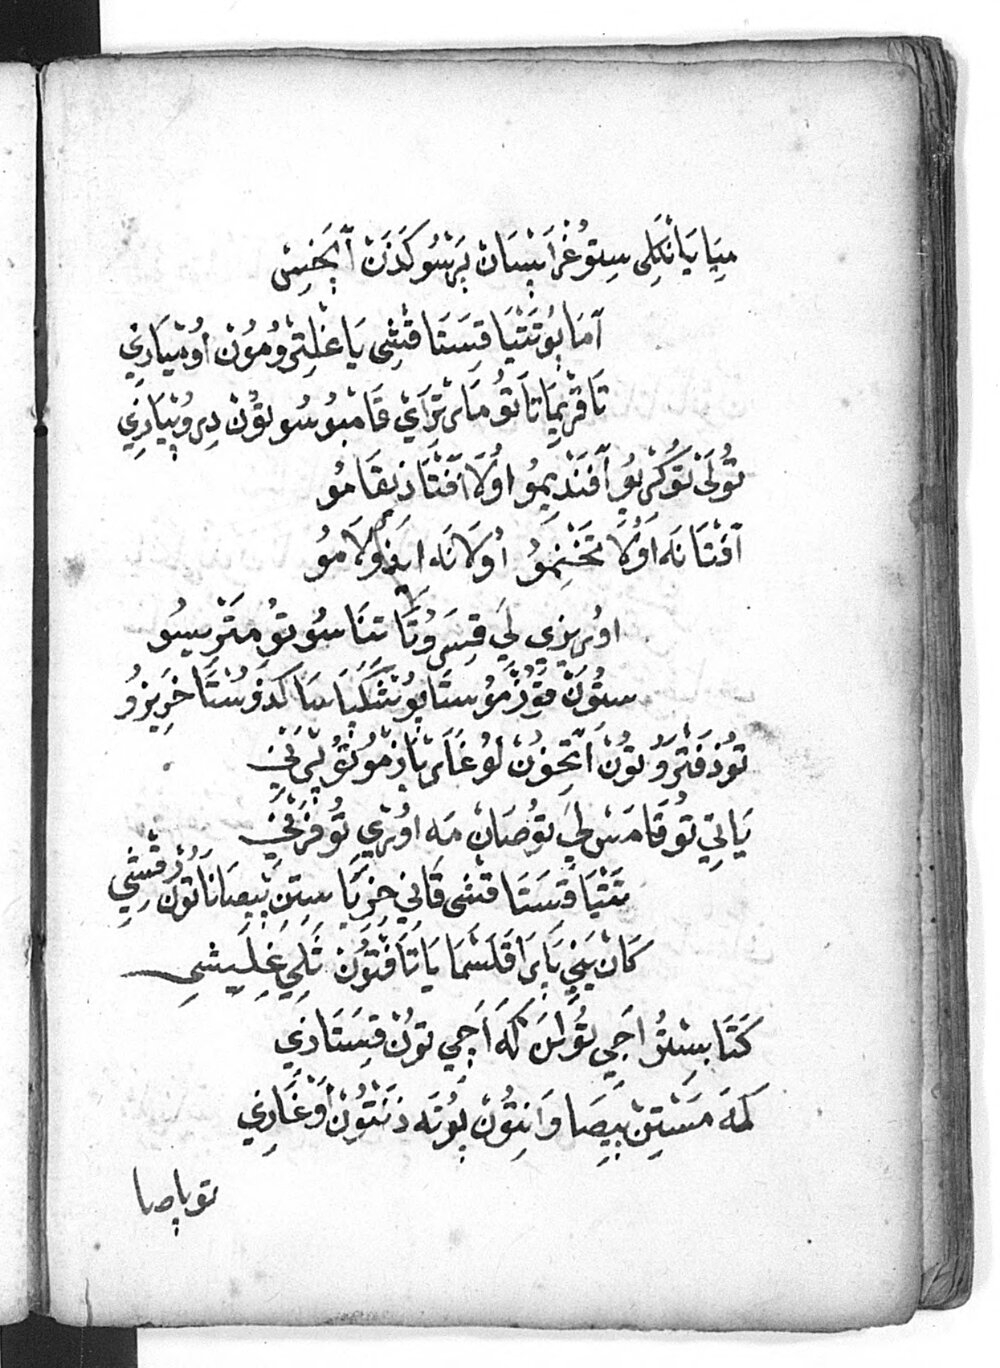 مِيَا يَانْكِلِى سِتُوغْرَاپْسَانْ پَرْسُو كَذَنْ اَپْخِسْ
اَمَا پُوتَتْيَا قِسَتَا قْتِثِى يَا غْلِتْرُومُونْ اُومْيَارِي
تَا قْرِيمَا تَا تُو مَاسْ تْرَايْ قَامْبُوسُو تُونْ دِرُوپْيَارِي
تُولَىْ تُوكْرِيُو اَفَنْدِيمُو اُولَا اَفْتَا ذِيقَامُو
اَفْتَا نَه اُولَا تَخْنِمُو اُولَا نَه اِيذِوُلَامُو
اُورِيزِي لَىْ قِسَرُوتَا تِنَا سُو تُو مَتْرِسُو
سِتُونْ قُوذْمُو سْتَا پُوشَكْيَاسَا كَذَوُسْتَا خَرِيزُو
تُو ذَفْتَرُو تُونْ اَتِّخُونْ لُوغَاسْ تَاذْمُو نُو پَرْنِي
يَاتِي تُو قَامَسْ لَىْ تُوصَانْ مَه اُورْي تُو فَرْنِي
تَتْيَا قِسَتَا قْتِثِى قَانِي خْزِيَا سِتِنْ پِيصَا نَا تُونْ رِقْشِي
كَانْ يَنِي يَايْرَا قَلَسْمَا يَا تَا فْتُونْ ثَلِي غِلِيشِي
كَتَا بِسِتُو اَجِي تُولَنْ كَه اَجِي تُونْ قِسِتَاذِي
كَمَه مَسْتِنْ پِيصَا وَانِتُونْ پُوتَه ذَنْتُونْ اَوْغَاذِي
تو پاصا